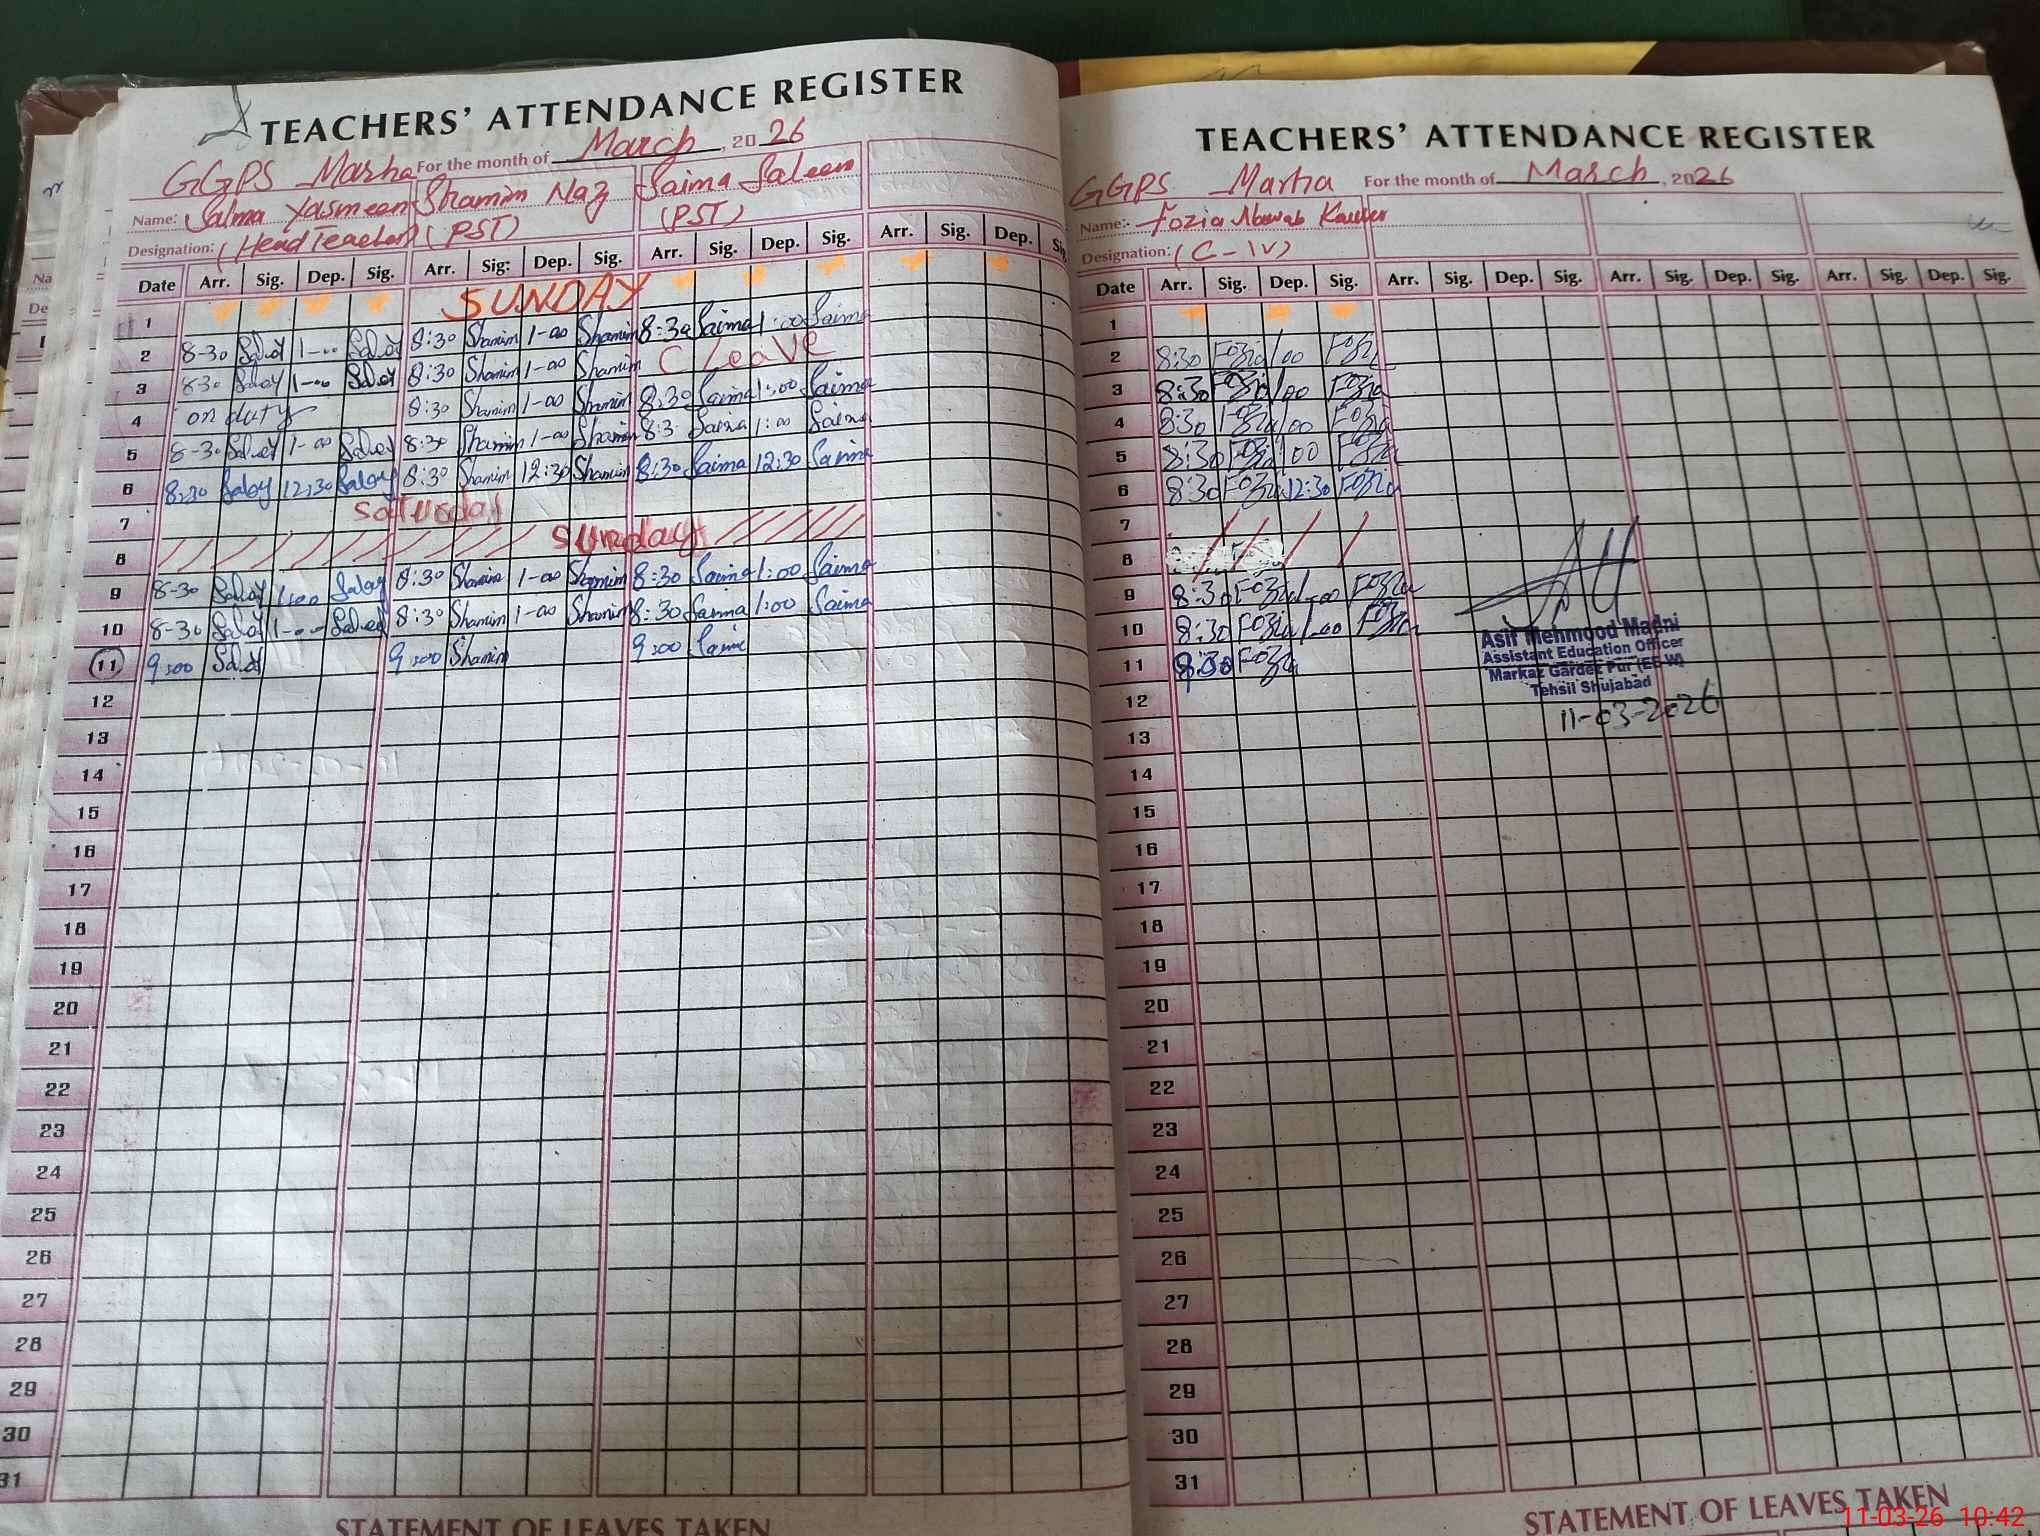 TEACHERS' ATTENDANCE REGISTER
GGPS Marha For the month of March, 2026
Name: Salma Yasmeen Shamim Naz Saima Saleem
Designation: (Head Teacher) (PST) (PST)
Date Arr. Sig. Dep. Sig. Arr. Sig: Dep. Sig. Arr. Sig. Dep. Sig. Arr. Sig. Dep. Sig.
1 SUNDAY
2 8-30 1-00 8:30 Shamim 1-00 Shamim 8:30 Saima 1:00 Saima
3 8-30 1-00 8:30 Shamim 1-00 Shamim C Leave
4 on duty 8:30 Shamim 1-00 Shamim 8:30 Saima 1:00 Saima
5 8-30 1-00 8:30 Shamim 1-00 Shamim 8:3 Saima 1:00 Saima
6 8:30 12:30 8:30 Shamim 12:30 Shamim 8:30 Saima 12:30 Saima
7 Saturday
8 Sunday
9 8-30 1:00 8:30 Shamim 1-00 Shamim 8:30 Saima 1:00 Saima
10 8-30 1-00 8:30 Shamim 1-00 Shamim 8:30 Saima 1:00 Saima
11 9:00 9:00 Shamim 9:00 Saima
12
13
14
15
16
17
18
19
20
21
22
23
24
25
26
27
28
29
30
31
STATEMENT OF LEAVES TAKEN
TEACHERS' ATTENDANCE REGISTER
GGPS Marha For the month of March, 2026
Name:- Fozia Nawab Kauser
Designation: (C-IV)
Date Arr. Sig. Dep. Sig. Arr. Sig. Dep. Sig. Arr. Sig. Dep. Sig. Arr. Sig. Dep. Sig.
1
2 8:30 Fozia 1:00 Fozia
3 8:30 Fozia 1:00 Fozia
4 8:30 Fozia 1:00 Fozia
5 8:30 Fozia 1:00 Fozia
6 8:30 Fozia 12:30 Fozia
7
8
9 8:30 Fozia 1-00 Fozia
10 8:30 Fozia 1-00 Fozia
11 8:30 Fozia
Asif Mehmood Madni
Assistant Education Officer
Markaz Gardez Pur (EE-W)
Tehsil Shujabad
11-03-2026
12
13
14
15
16
17
18
19
20
21
22
23
24
25
26
27
28
29
30
31
STATEMENT OF LEAVES TAKEN
11-03-26 10:42